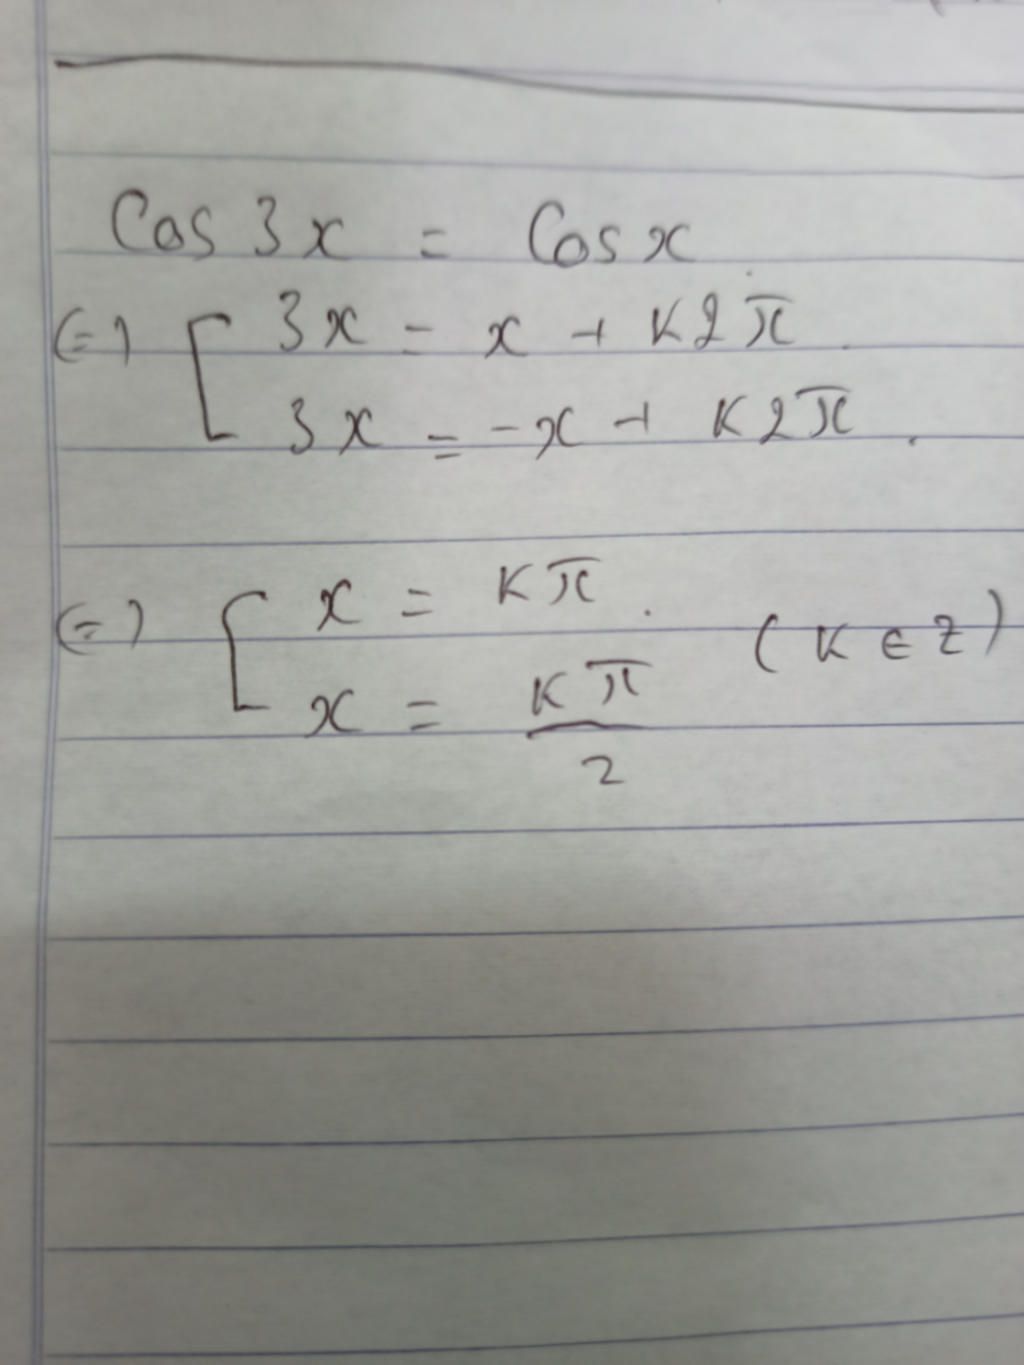 Cos 3x = Cos x
(=) [ 3x = x + K2π.
3x = -x + K2π.
(=) [ x = Kπ.
x = Kπ/2 (K ∈ Z)